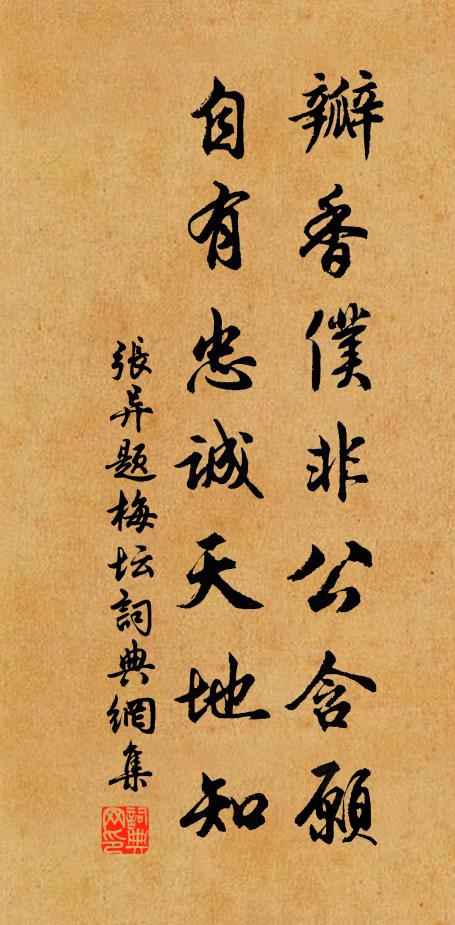 瓣香僕非公含願
自有忠誠天地知
張昇題梅坛詞典網集
詞典网印